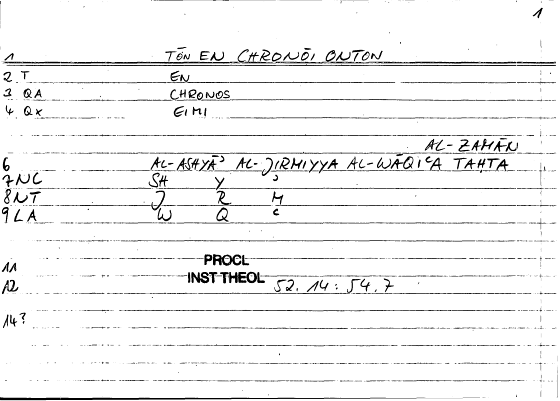 1
1 TŌN EN CHRONŌI ONTON
2 T EN
3 QA CHRONOS
4 Qx EIMI
AL-ZAMĀN
6 AL-ASHYĀʾ AL-JIRMIYYA AL-WĀQIʿA TAḤTA
7 NC SH Y ʾ
8 NT J R M
9 LA W Q ʿ
11 PROCL
12 INST THEOL 52.14 : 54.7
14?